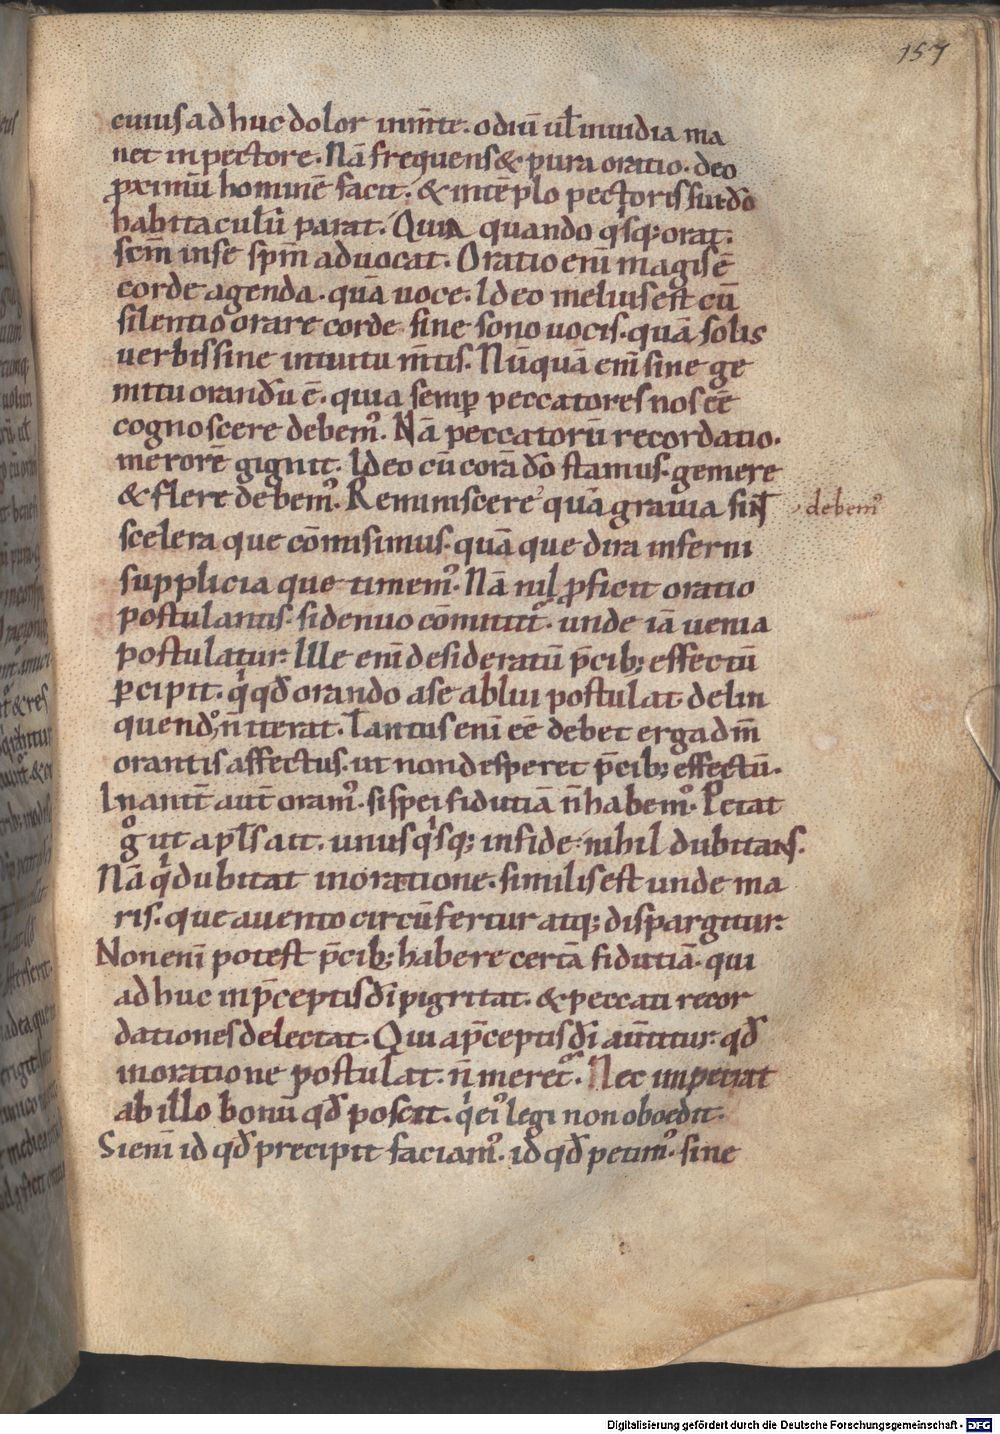 157
cuius adhuc dolor in m̅te. odiu̅ ul̅ inuidia ma
net in pectore. Na̅ frequens & pura oratio. deo
p̱ximu̅ homine̅ facit. & in te̅plo pectoris sui do̅
habitaculu̅ parat. Quia quando qͥsq; orat.
sc̅m in se sp̅m aduocat. Oratio eni̅ magis e̅
corde agenda. qua̅ uoce. Ideo melius est cu̅
silentio orare corde sine sono uocis. qua̅ solis
uerbis sine intuitu m̅tis. Nu̅qua̅ eni̅ sine ge
mitu orandu̅ e̅. quia semꝑ peccatores nos ee̅
cognoscere debem᷒. Na̅ peccatoru̅ recordatio.
merore̅ gignit. Ideo cu̅ cora̅ do̅ stamus. gemere
& flere debem᷒. Reminiscere qua̅ grauia sint
debem᷒
scelera que co̅misimus. qua̅ que dira inferni
supplicia que timem᷒. Na̅ nil ꝓficit oratio
postulantis. si denuo co̅mittit᷒. unde ia̅ uenia
postulatur. Ille eni̅ desideratu̅ p̅cib; effectu̅
ꝑcipit. qͥ qd̅ orando a se ablui postulat delin
quendo n̅ iterat. Tantus eni̅ ee̅ debet erga dm̅
orantis affectus. ut non desperet p̅cib; effectu̅.
Inanit̅ aut̅ oram᷒. si spei fidutia̅ n̅ habem᷒. Petat
gͦ ut apl̅s ait. unusqͥsq; in fide. nihil dubitans.
Na̅ qͥ dubitat in oratione. similis est unde ma
ris. que a uento circu̅fertur atq; dispargitur.
Non eni̅ potest p̅cib; habere certa̅ fidutia̅. qui
adhuc in p̅ceptis di̅ pigritat. & peccati recor
dationes delectat. Qui a p̅ceptis di̅ au̅titur. qd̅
in oratione postulat. n̅ meret᷒. Nec impetrat
ab illo bonu̅ qd̅ poscit. qͥ ei᷒ legi non oboedit.
Si eni̅ id qd̅ precipit faciam᷒. id qd̅ petim᷒. sine
Digitalisierung gefördert durch die Deutsche Forschungsgemeinschaft - DFG